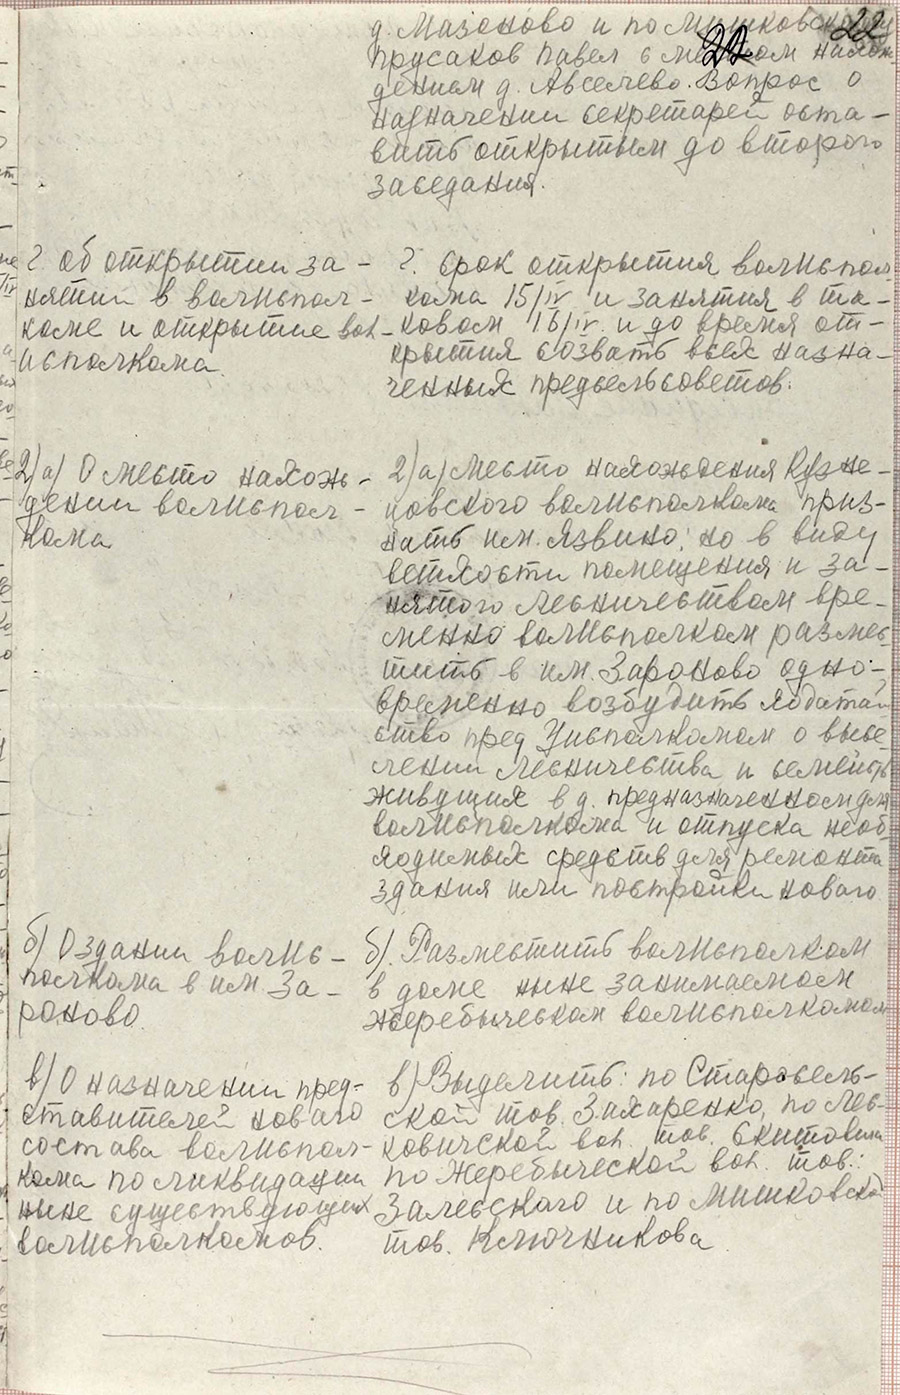 22
д. Мазоново и по Мишковскому
прусаков павел с местом нахож-
дением д. Авсеево. Вопрос о
назначении секретарей оста-
вить открытым до второго
заседания.
г. об открытии за-
нятий в волиспол-
коме и открытие вол-
исполкома.
г. срок открытия волиспол-
кома 15/IV и занятия в та-
ковом 16/IV. и до время от-
крытия созвать всех назна-
ченных предсельсоветов.
2/а/ О место нахож-
дении волиспол-
кома
2/а/ место нахождения Кузне-
цовского волисполкома приз-
нать им. Язвино, но в виду
ветхости помещения и за-
нятого лесничеством вре-
менно волисполком размес-
тить в им. Зароново одно-
временно возбудить ходатай-
ство пред Уисполкомом о высе-
лении лесничества и семейств
живущих в д. предназначенном для
волисполкома и отпуска необ-
ходимых средств для ремонта
здания или постройки новаго
б/ О здании волис-
полкома в им. За-
роново.
б/. Разместить волисполком
в доме ныне занимаемом
жеребыческом волисполкомом
в/ О назначении пред-
ставителей новаго
состава волиспол-
кома по ликвидации
ныне существующих
волисполкомов.
в/ Выделить: по Старосель-
ской тов. Захаренко, по Лес-
ковичской вол. тов. Скитовича
по Жеребыческой вол. тов.:
Залесского и по Мишковской
тов. Ключникова